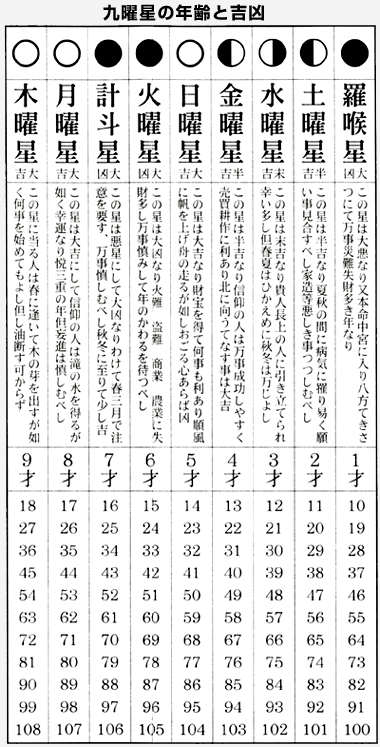 九曜星の年齢と吉凶
羅喉星 大凶
この星は大悪なり又本命中宮に入り八方てきさ
つにて万事災難失財多き年なり
土曜星 半吉
この星は半吉なり夏秋の間に病気に罹り易く願
い事見合すべし家造等悪しき事つつしむべし
水曜星 末吉
この星は末吉なり貴人長上の人に引き立てられ
幸い多し但春夏はひかえめに秋冬は万じよし
金曜星 半吉
この星は半吉なり信仰の人は万事成功しやすく
売買耕作に利あり北に向うてなす事は大吉
日曜星 大吉
この星は大吉なり財宝を得て何事も利あり順風
に帆を上げ舟の走るが如しおごる心あらば凶
火曜星 大凶
この星は大凶なり火難 盗難 商業 農業に失
財多し万事慎みして年のかわるを待つべし
計斗星 大凶
この星は悪星にして大凶なりわけて春三月で注
意を要す、万事慎しむべし秋冬に至りて少し吉
月曜星 大吉
この星は大吉にして信仰の人は滝の水を得るが
如く幸運なり祝三重の年但妄進は慎しむべし
木曜星 大吉
この星に当る人は春に逢いて木の芽を出すが如
く何事を始めてもよし但し油断す可からず
9才 8才 7才 6才 5才 4才 3才 2才 1才
18 17 16 15 14 13 12 11 10
27 26 25 24 23 22 21 20 19
36 35 34 33 32 31 30 29 28
45 44 43 42 41 40 39 38 37
54 53 52 51 50 49 48 47 46
63 62 61 60 59 58 57 56 55
72 71 70 69 68 67 66 65 64
81 80 79 78 77 76 75 74 73
90 89 88 87 86 85 84 83 82
99 98 97 96 95 94 93 92 91
108 107 106 105 104 103 102 101 100